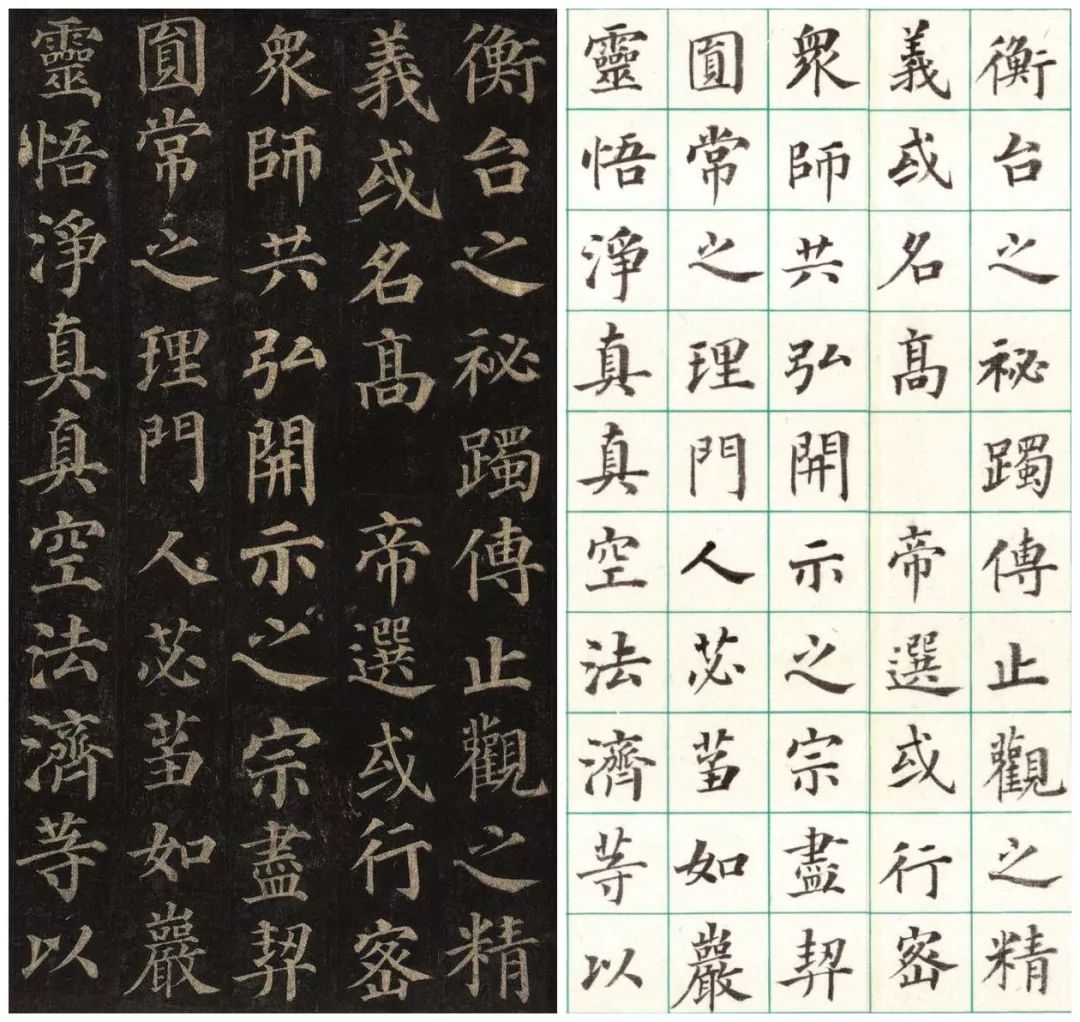 衡台之祕躅傳止觀之精
義或名髙 帝選或行密
衆師共弘開示之宗盡契
圎常之理門人苾蒭如巖
靈悟淨真真空法濟等以
衡台之祕躅傳止觀之精
義或名髙 帝選或行密
衆師共弘開示之宗盡契
圎常之理門人苾蒭如巖
靈悟淨真真空法濟等以